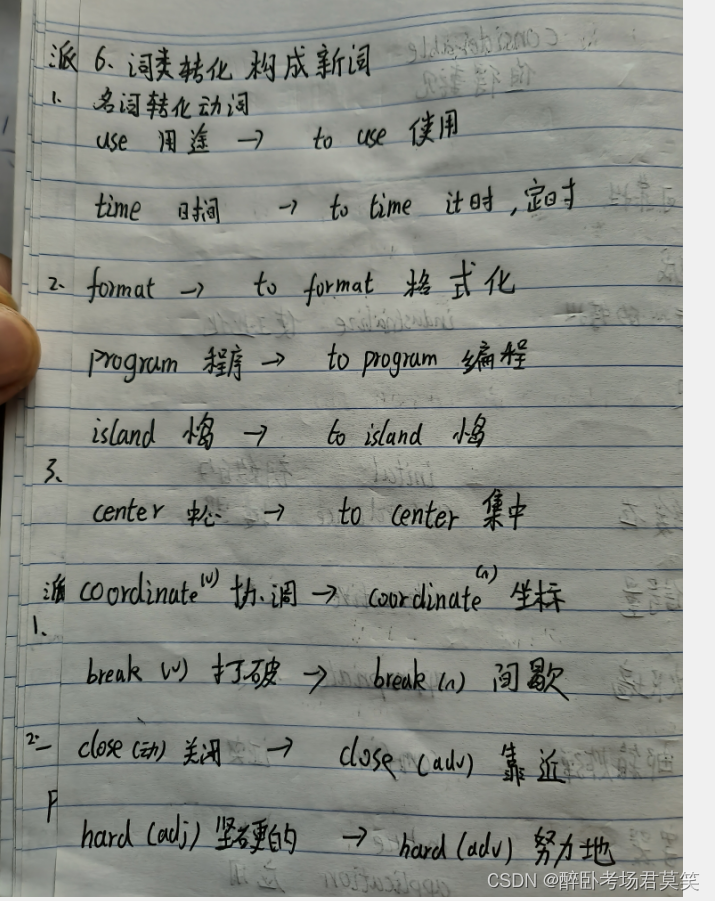 派 6、词类转化 构成新词
1. 名词转化动词
use 用途 → to use 使用
time 时间 → to time 计时，定时
2. format → to format 格式化
program 程序 → to program 编程
island 小岛 → to island 小岛
3、
center 中心 → to center 集中
派 coordinate(v) 协调 → coordinate(n) 坐标
1、
break (v) 打破 → break(n) 间歇
2. close (动) 关闭 → close (adv) 靠近
hard (adj) 坚硬的 → hard (adv) 努力地
CSDN @醉卧考场君莫笑